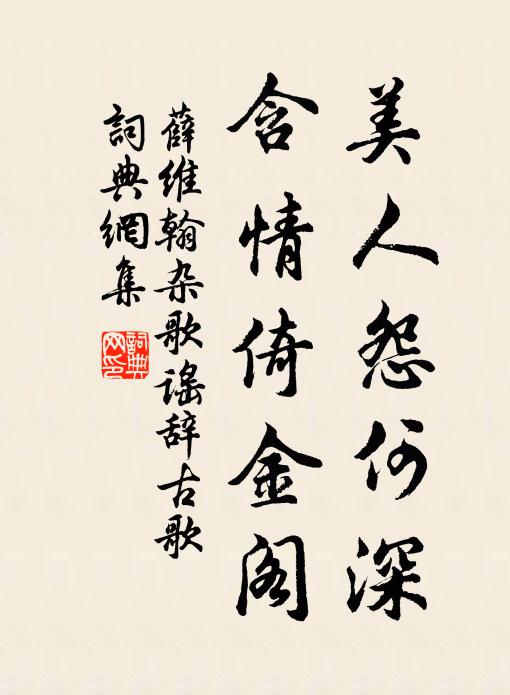 美人怨何深
含情倚金阁
薛維翰杂歌謠辞古歌
詞典網集
詞典网印